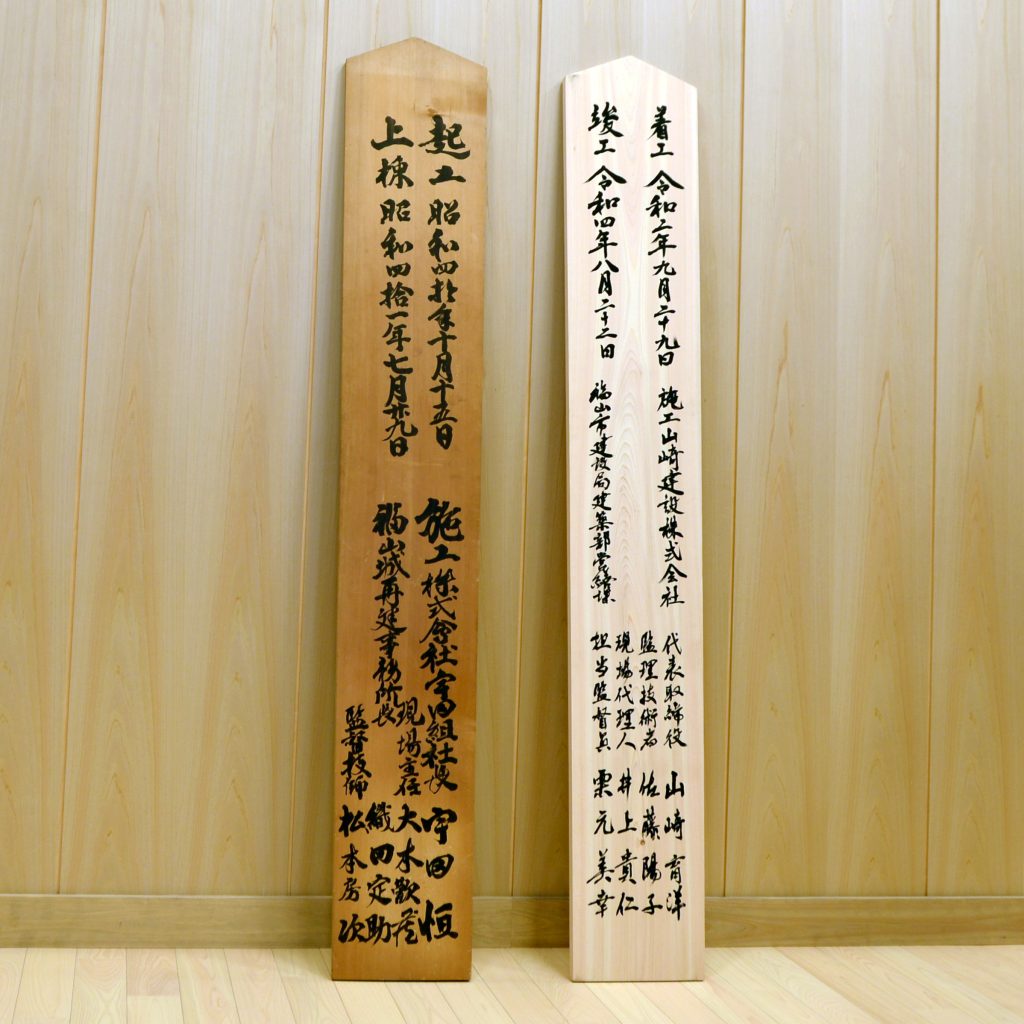 着工 令和二年九月二十九日 施工山崎建設株式会社 代表取締役 山崎育洋
監理技術者 佐藤陽子
現場代理人 井上貴仁
竣工 令和四年八月二十二日 福山市建設局建築部営繕課 担当監督員 栗元美幸
起工 昭和四拾年十月十五日 施工株式會社宇田組社長 宇田恒
現場主任 大木歡
上棟 昭和四拾一年七月廿九日 福山城再建事務所長 織田定助
監督技師 松本房次